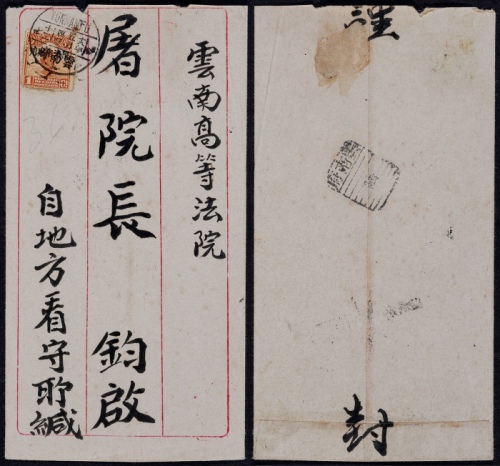 雲南高等法院
屠院長 鈞啟
自地方看守所緘
謹
封